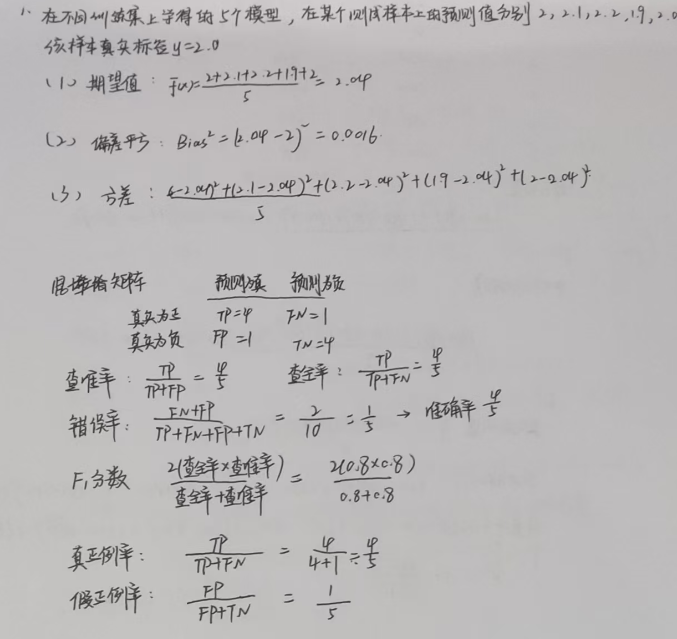 1. 在不同训练集上学得的5个模型，在某个测试样本上的预测值分别2, 2.1, 2.2, 1.9, 2.0
该样本真实标签y=2.0
(1) 期望值: f(x)=(2+2.1+2.2+1.9+2)/5=2.04
(2) 偏差平方: Bias²=(2.04-2)²=0.0016
(3) 方差: (2-2.04)²+(2.1-2.04)²+(2.2-2.04)²+(1.9-2.04)²+(2-2.04)²/5
混淆矩阵 预测为真 预测为负
真实为正 TP=4 FN=1
真实为负 FP=1 TN=4
查准率: TP/(TP+FP)=4/5 查全率: TP/(TP+FN)=4/5
错误率: (FN+FP)/(TP+FN+FP+TN)=2/10=1/5 → 准确率 4/5
F₁分数 2(查全率×查准率)/(查全率+查准率)=2(0.8×0.8)/(0.8+0.8)
真正例率: TP/(TP+FN)=4/(4+1)=4/5
假正例率: FP/(FP+TN)=1/5